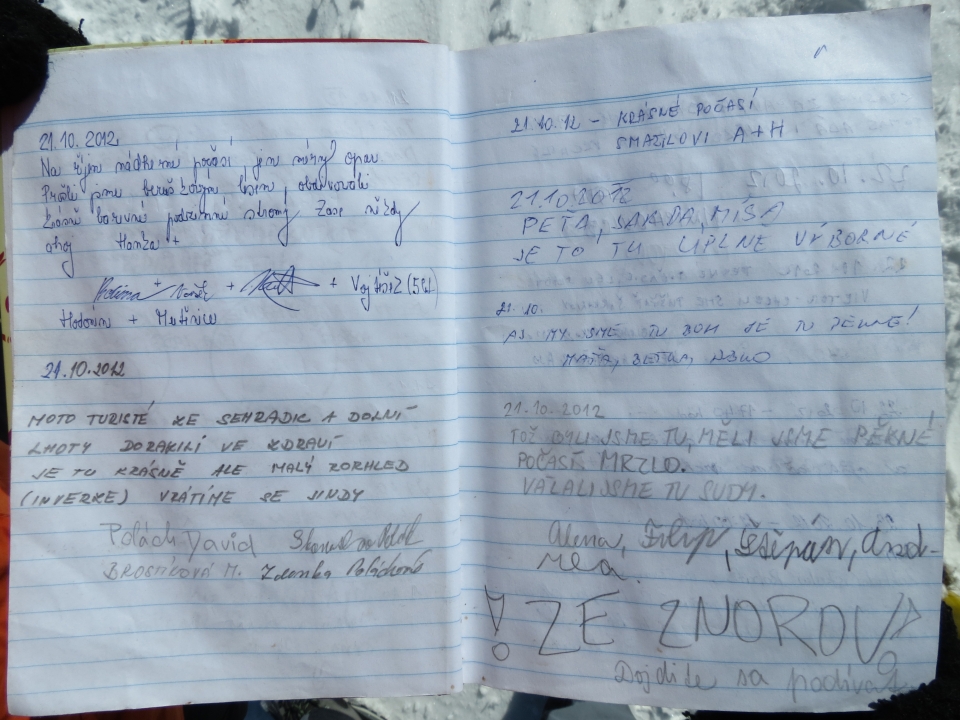 21.10.2012
Na říjen nádherné počasí, jen mírný opar.
Prošli jsme
barevné podzimní stromy Zase někdy
ahoj Honza +
+ + + Vojtíšek (5 let)
Hodonín + Mutěnice
21.10.2012
MOTO TURISTÉ ZE SEHRADIC A DOLNÍ
LHOTY DORAZILI VE ZDRAVÍ
JE TO KRÁSNĚ ALE MALÝ ROZHLED
(INVERZE) VRÁTÍME SE JINDY
Polách David
BROSÍKOVÁ M. Zdenka Poláchová
21.10.12 - KRÁSNÉ POČASÍ
SMAŽILOVI A+H
21.10.2012
PEŤA, MÍŠA
JE TO TU ÚPLNĚ VÝBORNÉ
21.10.
AJ MY SME TU BOLI JE TU PEKNE!
MAŤA,
21.10.2012
TOŽ BYLI JSME TU, MĚLI JSME PĚKNÉ
POČASÍ MRZLO.
VÁLALI JSME TU SUDY.
Alena, Filip, Štěpán, Ando-
rea.
! ZE ZNOROV!
Dojdite sa podívat